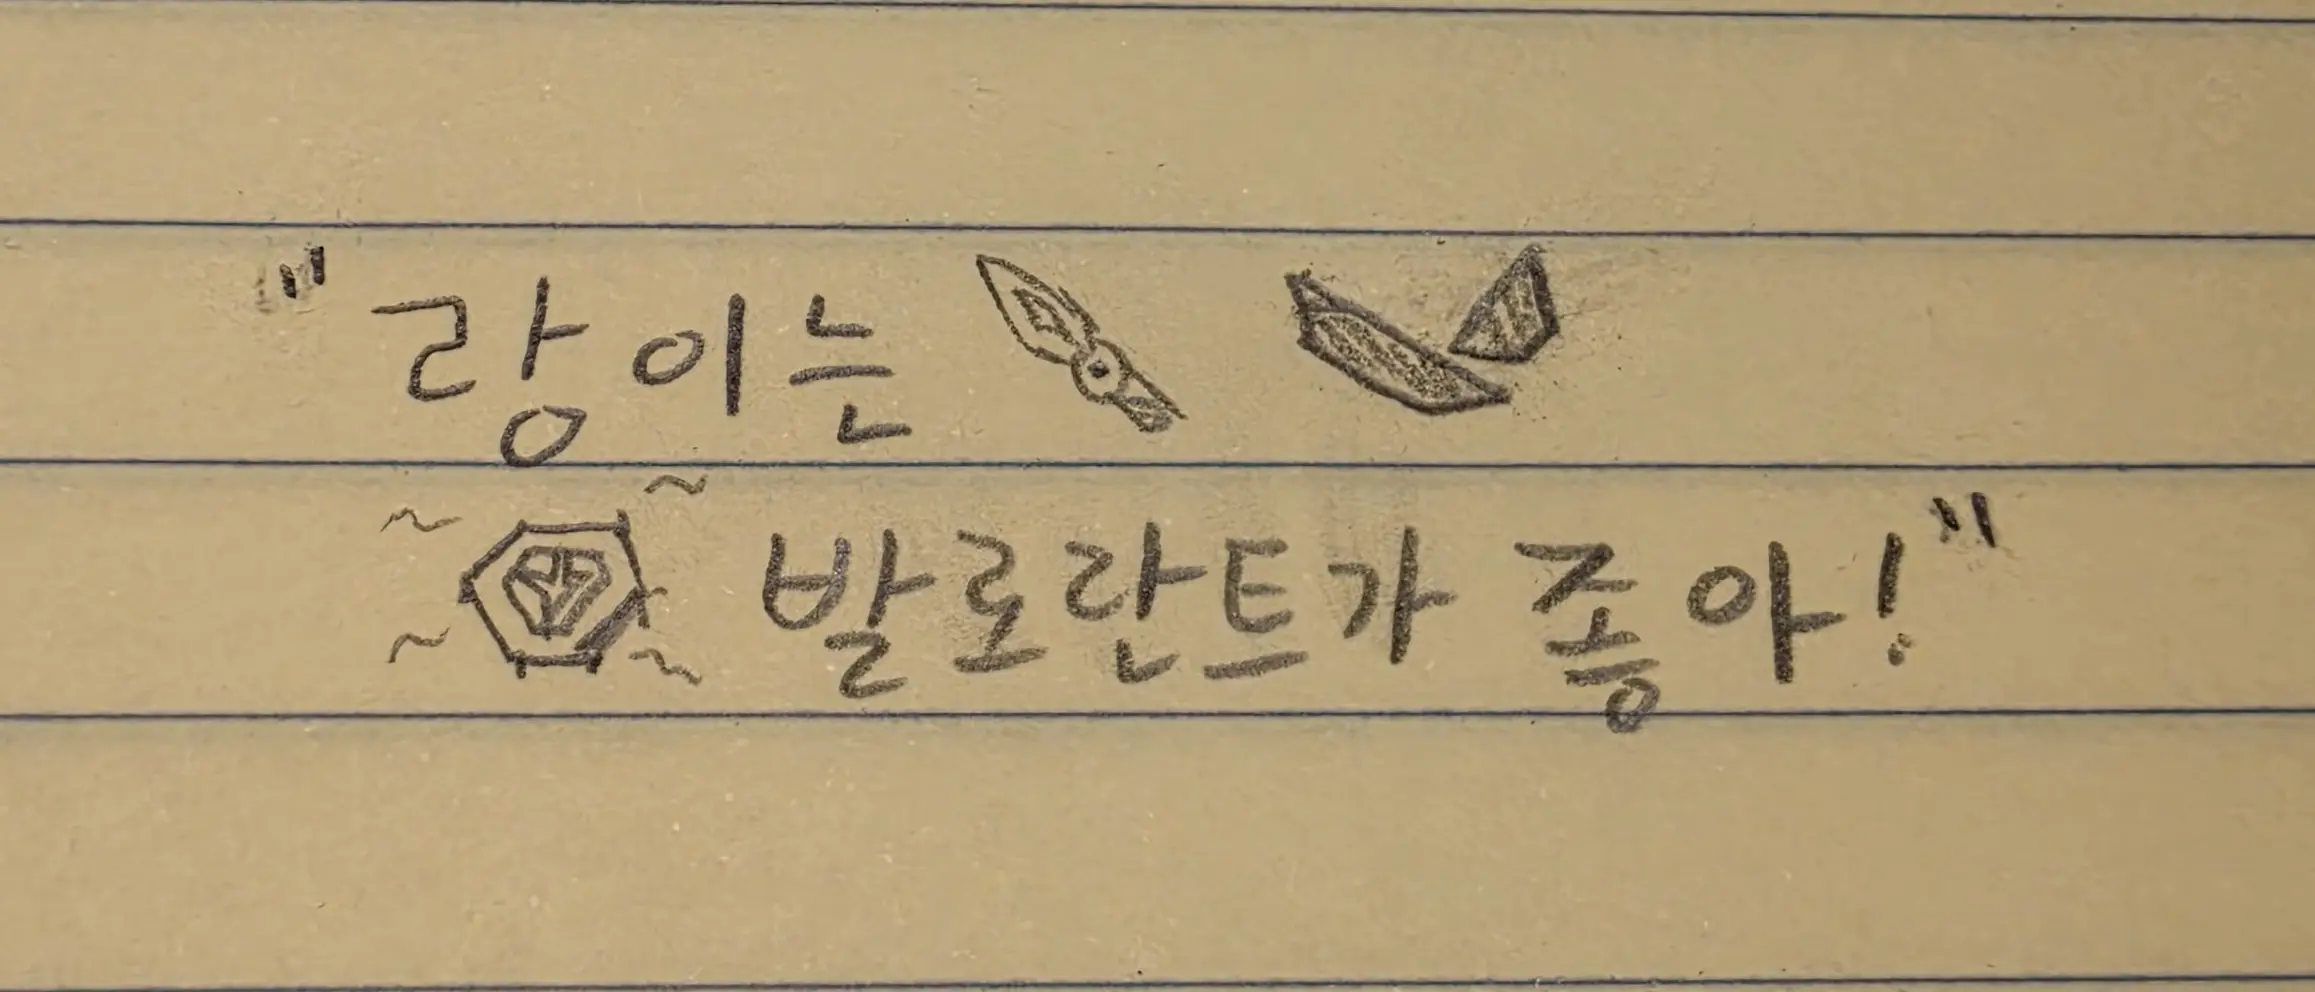 "랑이는
발로란트가 좋아!"